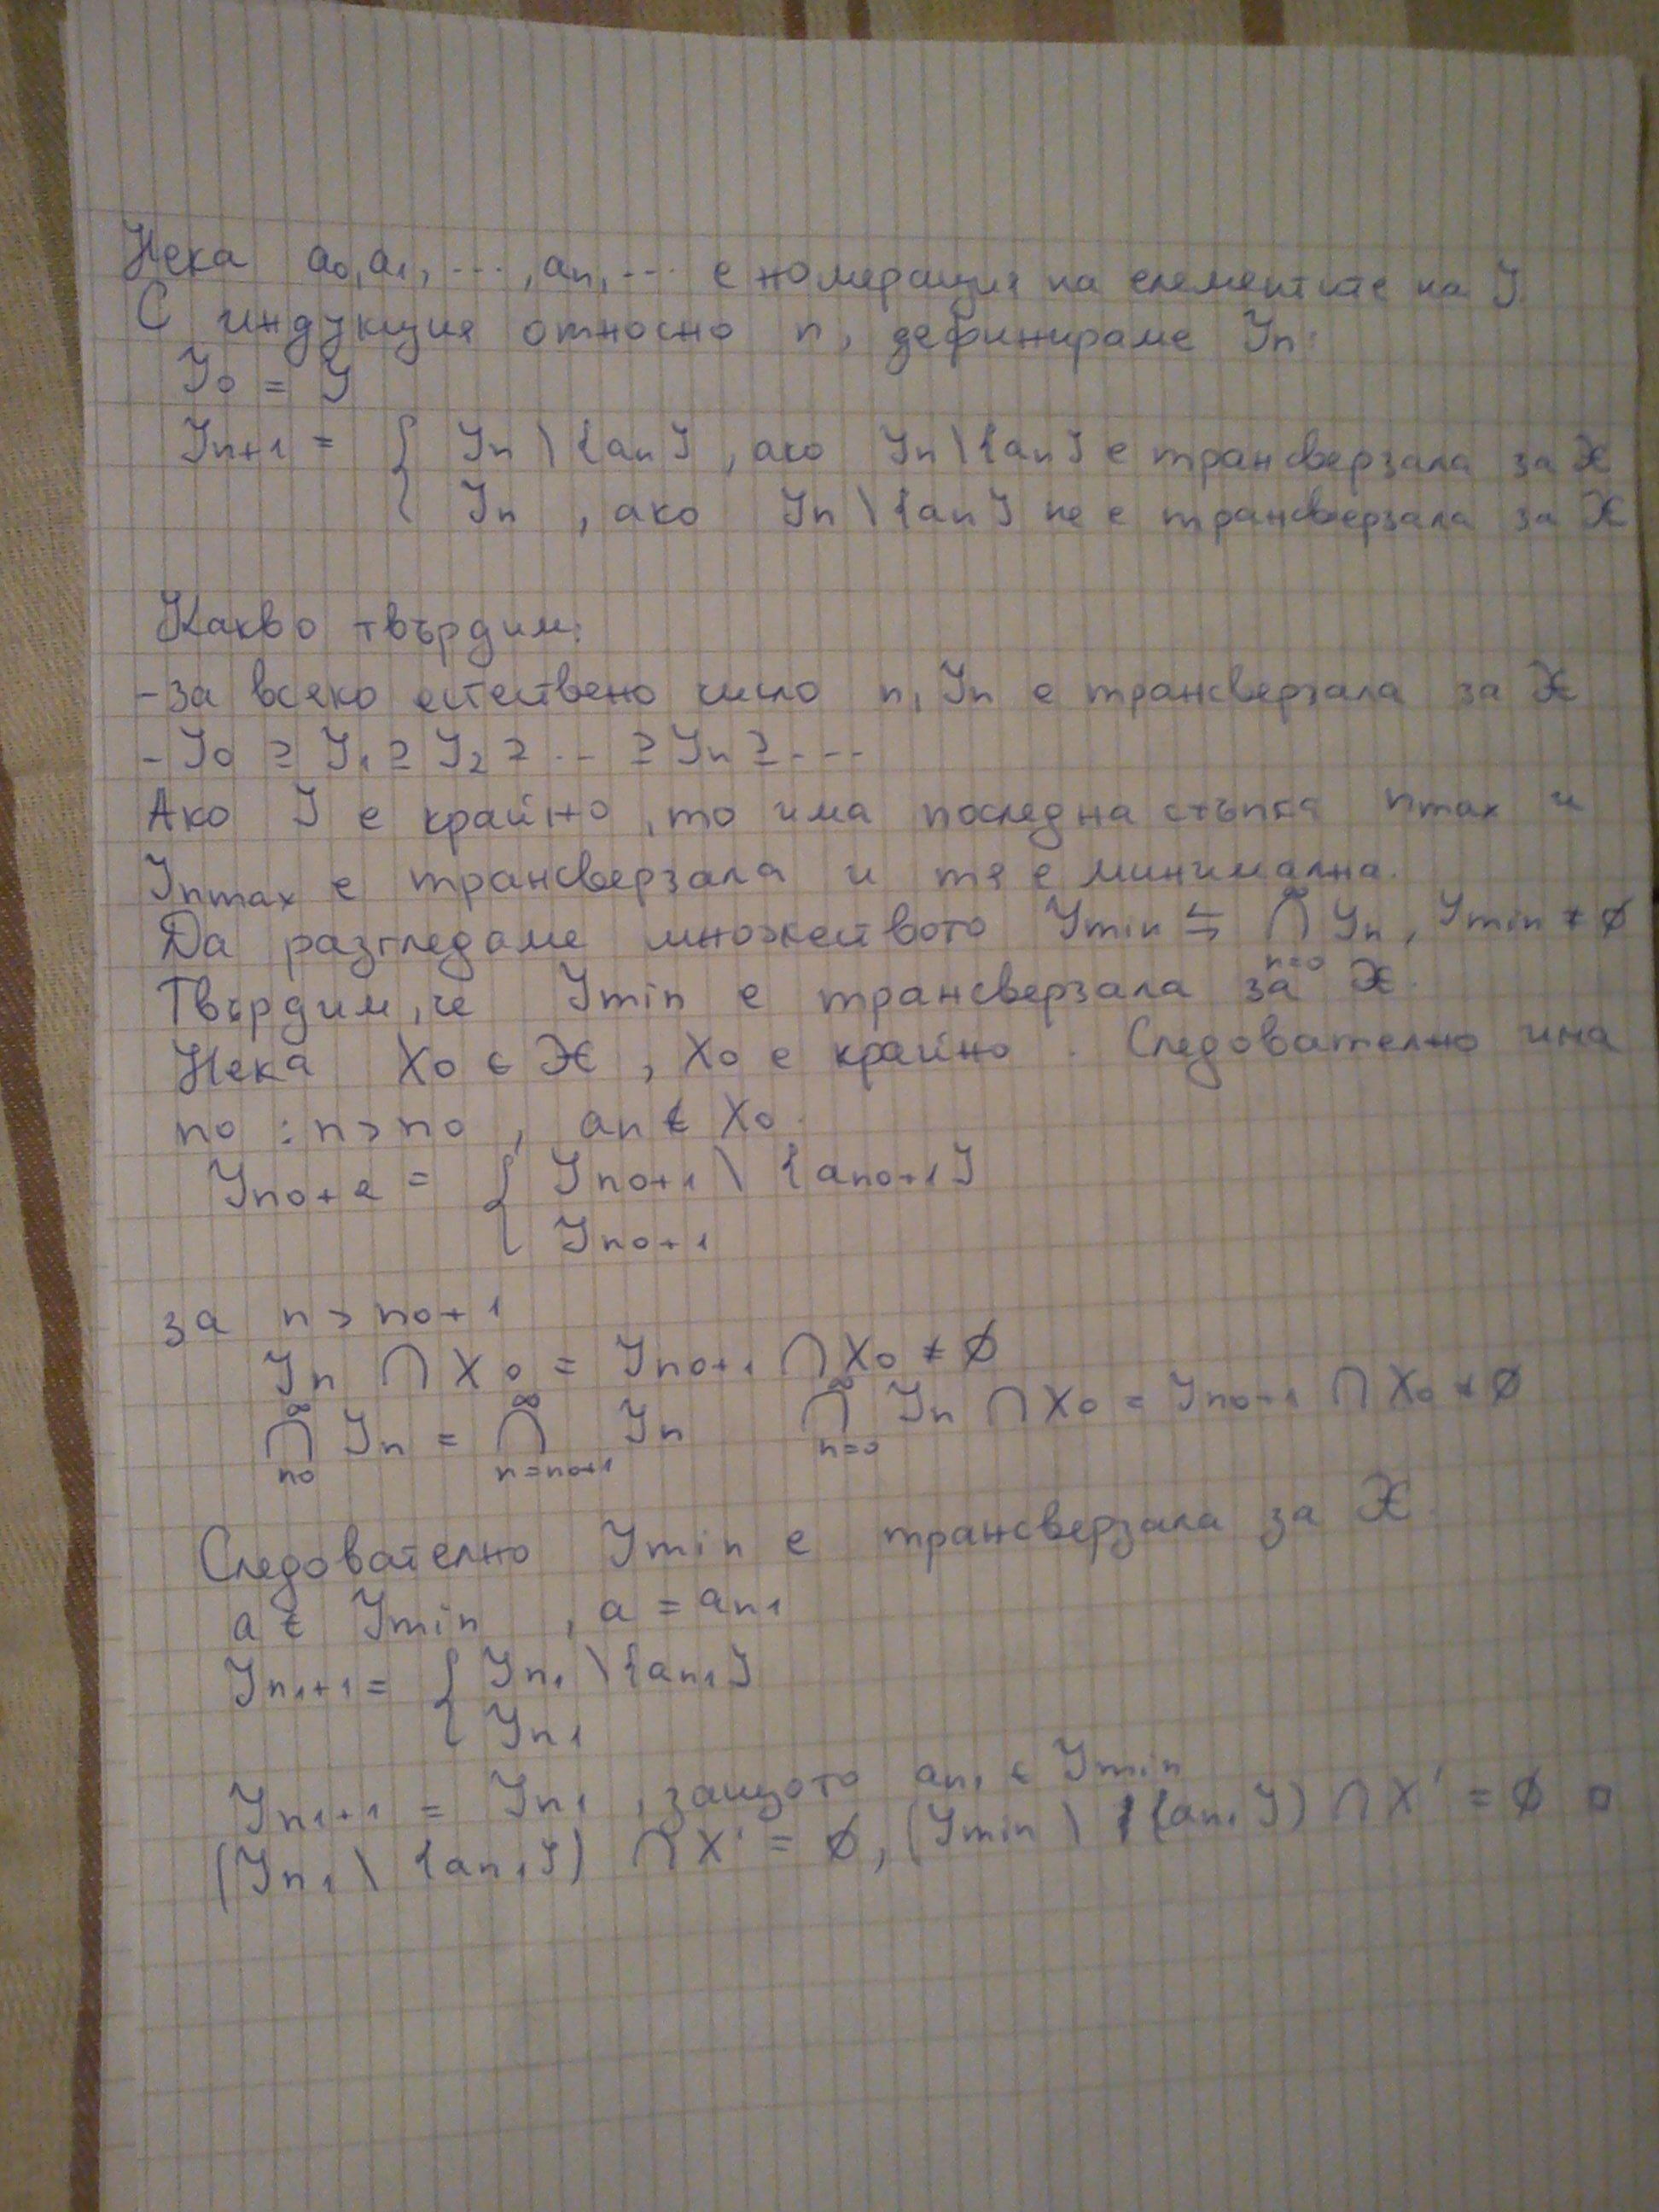 Нека a₀, a₁, ..., aₙ, ... е номерация на елементите на Y.
С индукция относно n, дефинираме Yₙ:
Y₀ = Y
Yₙ₊₁ = { Yₙ \ {aₙ}, ако Yₙ \ {aₙ} е трансверзала за 𝒳
Yₙ, ако Yₙ \ {aₙ} не е трансверзала за 𝒳
Какво твърдим:
- за всяко естествено число n, Yₙ е трансверзала за 𝒳
- Y₀ ⊇ Y₁ ⊇ Y₂ ⊇ ... ⊇ Yₙ ⊇ ...
Ако Y е крайно, то има последна стъпка n_max и
Y_nmax е трансверзала и тя е минимална.
Да разгледаме множеството Y_min ⇆ ⋂_{n=0}^∞ Yₙ, Y_min ≠ ∅
Твърдим, че Y_min е трансверзала за 𝒳.
Нека X₀ ∈ 𝒳, X₀ е крайно. Следователно има
n₀ : n > n₀, aₙ ∉ X₀.
Y_{n₀+2} = { Y_{n₀+1} \ {a_{n₀+1}}
Y_{n₀+1}
за n > n₀+1
Yₙ ∩ X₀ = Y_{n₀+1} ∩ X₀ ≠ ∅
⋂_{n₀}^∞ Yₙ = ⋂_{n=n₀+1}^∞ Yₙ ⋂_{n=0}^∞ Yₙ ∩ X₀ = Y_{n₀+1} ∩ X₀ ≠ ∅
Следователно Y_min е трансверзала за 𝒳.
a ∈ Y_min, a = a_{n₁}
Y_{n₁+1} = { Y_{n₁} \ {a_{n₁}}
Y_{n₁}
Y_{n₁+1} = Y_{n₁}, защото a_{n₁} ∈ Y_min
(Y_{n₁} \ {a_{n₁}}) ∩ X' = ∅, (Y_min \ {a_{n₁}}) ∩ X' = ∅ □